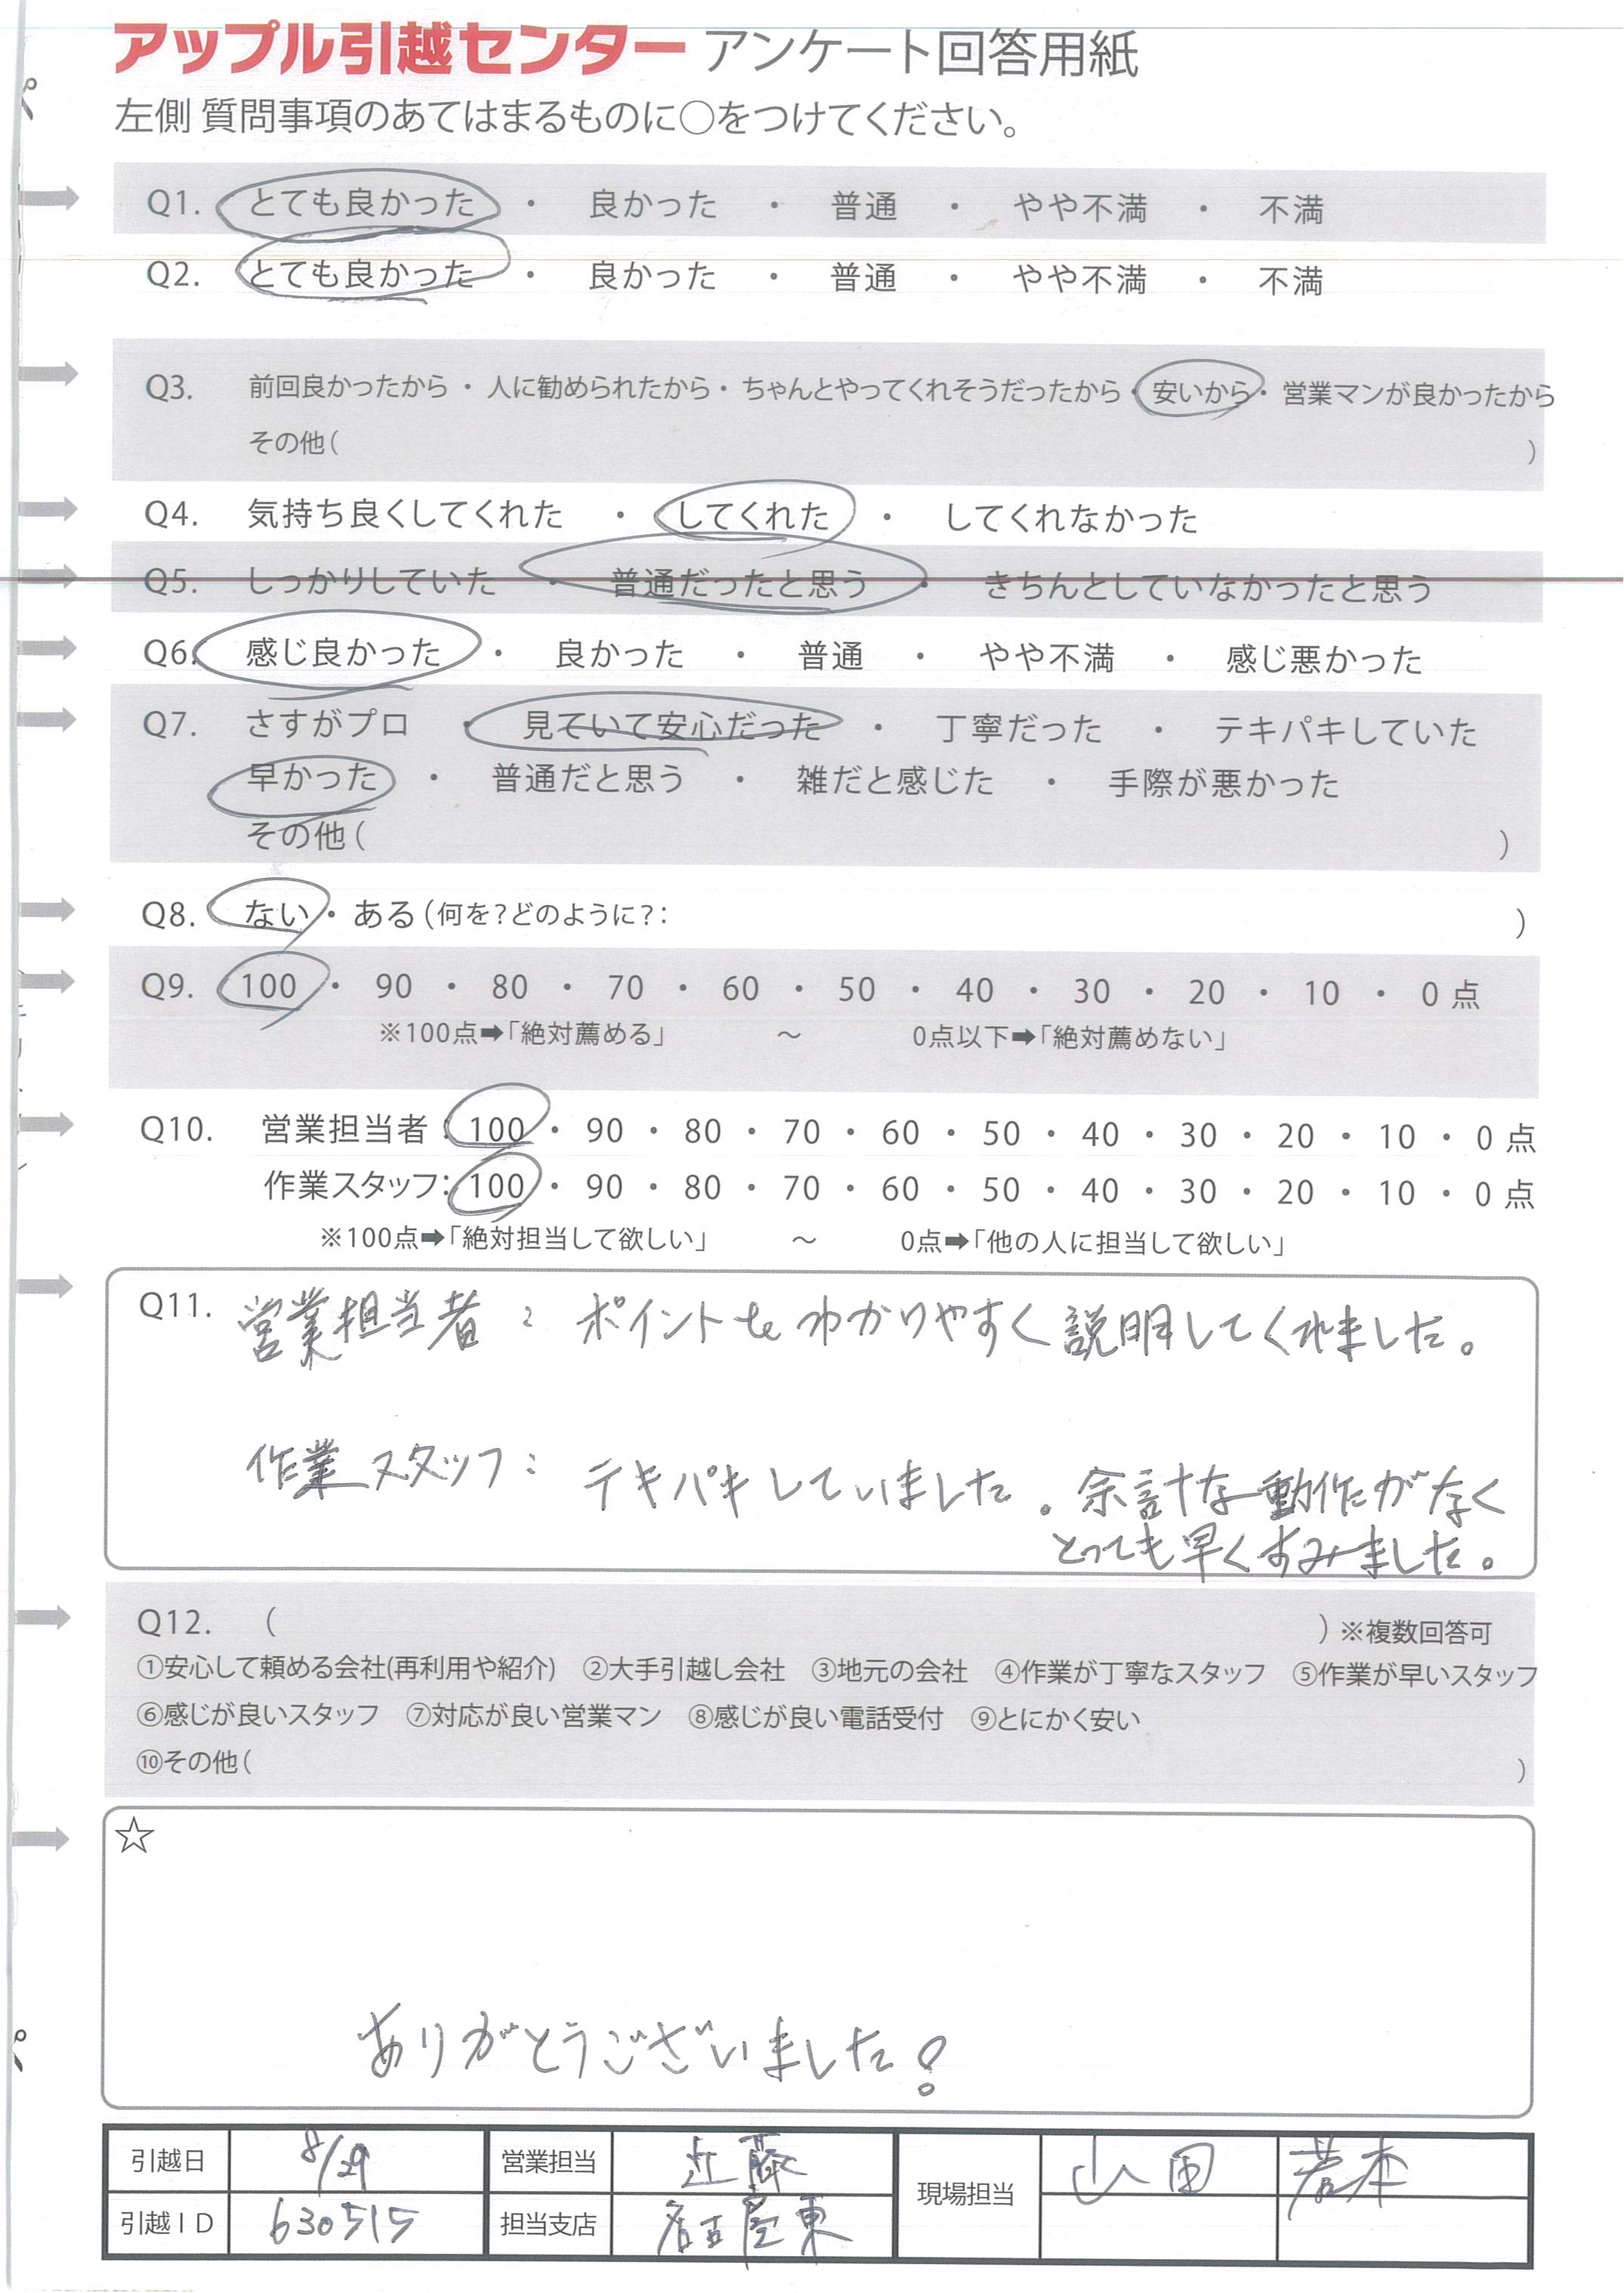 アップル引越センター アンケート回答用紙
左側 質問事項のあてはまるものに○をつけてください。
Q1. とても良かった ・ 良かった ・ 普通 ・ やや不満 ・ 不満
Q2. とても良かった ・ 良かった ・ 普通 ・ やや不満 ・ 不満
Q3. 前回良かったから ・ 人に勧められたから ・ ちゃんとやってくれそうだったから ・ 安いから ・ 営業マンが良かったから
その他( )
Q4. 気持ち良くしてくれた ・ してくれた ・ してくれなかった
Q5. しっかりしていた ・ 普通だったと思う ・ きちんとしていなかったと思う
Q6. 感じ良かった ・ 良かった ・ 普通 ・ やや不満 ・ 感じ悪かった
Q7. さすがプロ ・ 見ていて安心だった ・ 丁寧だった ・ テキパキしていた
早かった ・ 普通だと思う ・ 雑だと感じた ・ 手際が悪かった
その他( )
Q8. ない ・ ある(何を?どのように?: )
Q9. 100 ・ 90 ・ 80 ・ 70 ・ 60 ・ 50 ・ 40 ・ 30 ・ 20 ・ 10 ・ 0 点
※100点➡「絶対薦める」 〜 0点以下➡「絶対薦めない」
Q10. 営業担当者: 100 ・ 90 ・ 80 ・ 70 ・ 60 ・ 50 ・ 40 ・ 30 ・ 20 ・ 10 ・ 0 点
作業スタッフ: 100 ・ 90 ・ 80 ・ 70 ・ 60 ・ 50 ・ 40 ・ 30 ・ 20 ・ 10 ・ 0 点
※100点➡「絶対担当して欲しい」 〜 0点➡「他の人に担当して欲しい」
Q11. 営業担当者: ポイントをわかりやすく説明してくれました。
作業スタッフ: テキパキしていました。余計な動作がなく
とっても早くすみました。
Q12. ( ) ※複数回答可
①安心して頼める会社(再利用や紹介) ②大手引越し会社 ③地元の会社 ④作業が丁寧なスタッフ ⑤作業が早いスタッフ
⑥感じが良いスタッフ ⑦対応が良い営業マン ⑧感じが良い電話受付 ⑨とにかく安い
⑩その他( )
☆
ありがとうございました!
引越日 8/29 営業担当 近藤 現場担当 山田 若本
引越ID 630515 担当支店 名古屋東